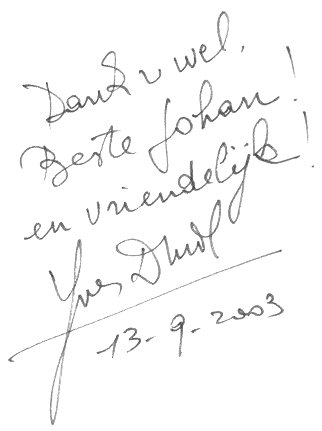 Dank u wel,
Beste Johan!
en vriendelijk!
Yves
13-9-2003